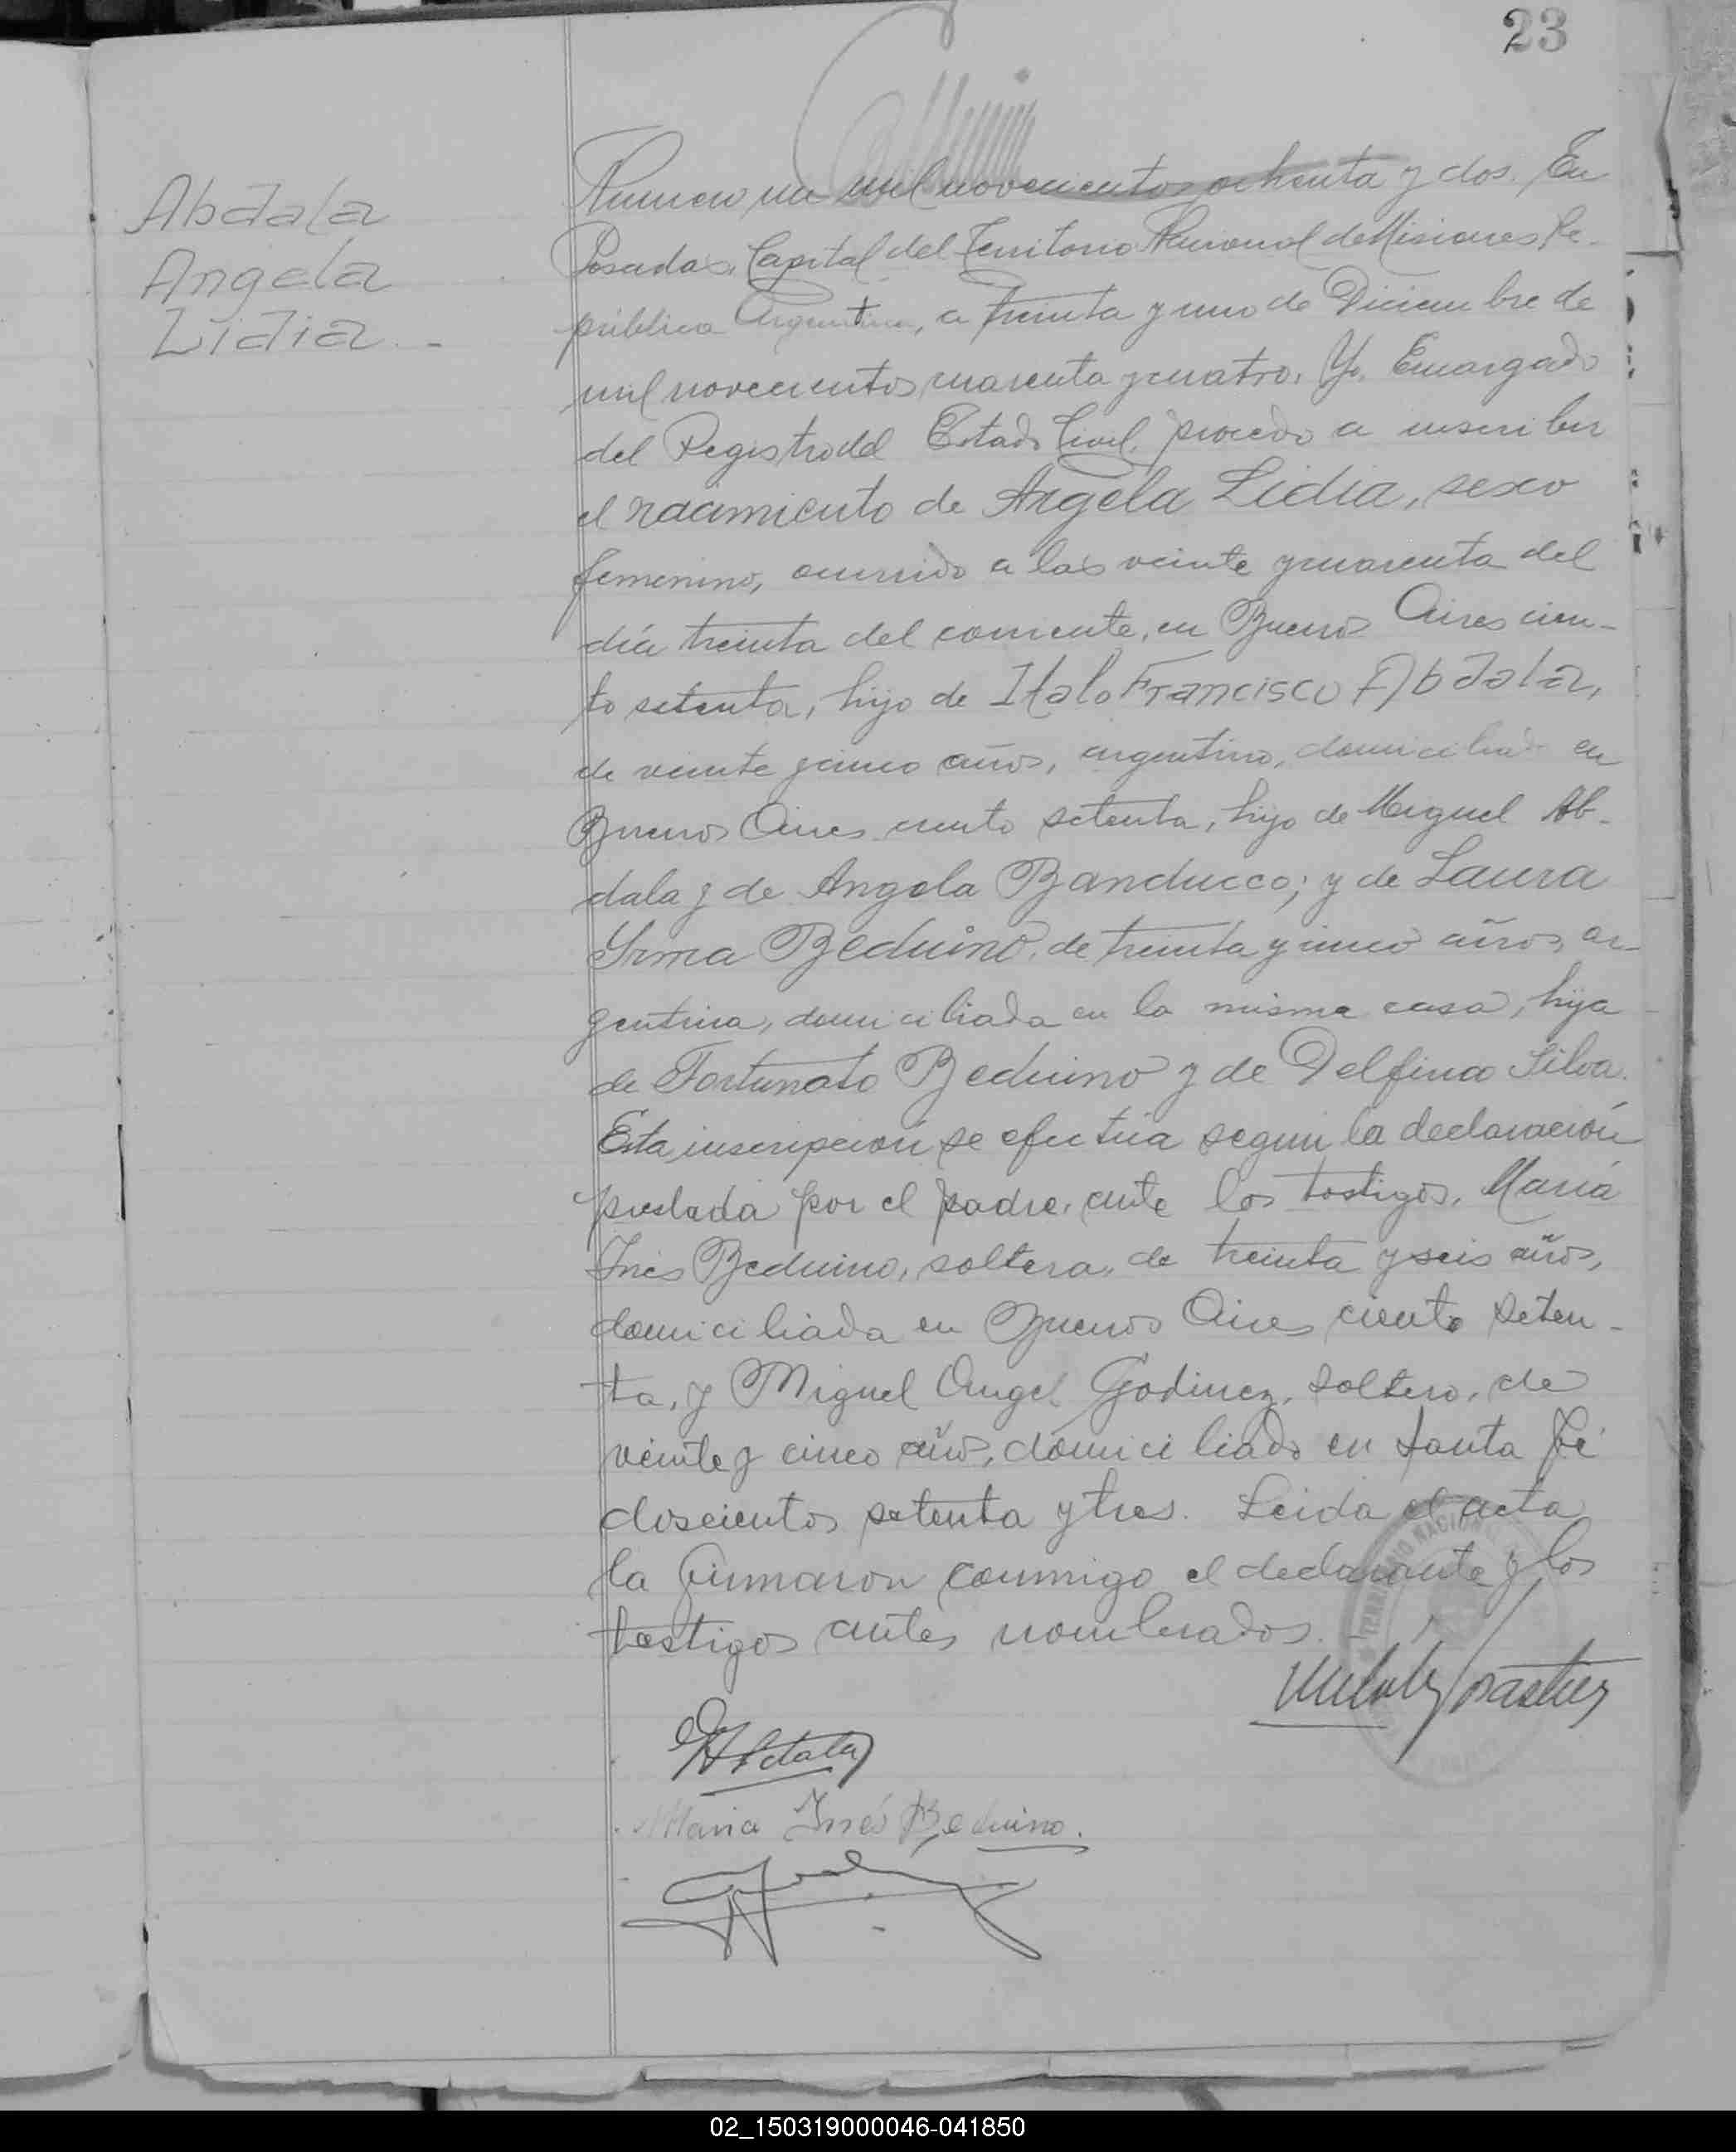 23
Abdala
Angela
Lidia.-
Numero un mil novecientos ochenta y dos. En
Posadas, Capital del Territorio Nacional de Misiones Re-
pública Argentina, a treinta y uno de Diciembre de
mil novecientos cuarenta y cuatro. Yo, Encargado
del Registro del Estado Civil, procedo a inscribir
el nacimiento de Angela Lidia, sexo
femenino, ocurrido a las veinte y cuarenta del
día treinta del corriente, en Buenos Aires cien-
to setenta, hijo de Italo Francisco Abdala,
de veinte y cinco años, argentino, domiciliado en
Buenos Aires ciento setenta, hijo de Miguel Ab-
dala y de Angela Banducco; y de Laura
Yrma Beduino, de treinta y cinco años, ar-
gentina, domiciliada en la misma casa, hija
de Fortunato Beduino y de Delfina Silva.
Esta inscripción se efectúa segun la declaración
prestada por el padre, ante los testigos, María
Inés Beduino, soltera, de treinta y seis años,
domiciliada en Buenos Aires ciento seten-
ta, y Miguel Angel Godinez, soltero, de
veinte y cinco años, domiciliado en Santa Fé
doscientos setenta y tres. Leida el acta
la firmaron conmigo el declarante y los
testigos antes nombrados.
Abdala
Maria Inés Beduino.
TERRITORIO NACIONAL
02_150319000046-041850